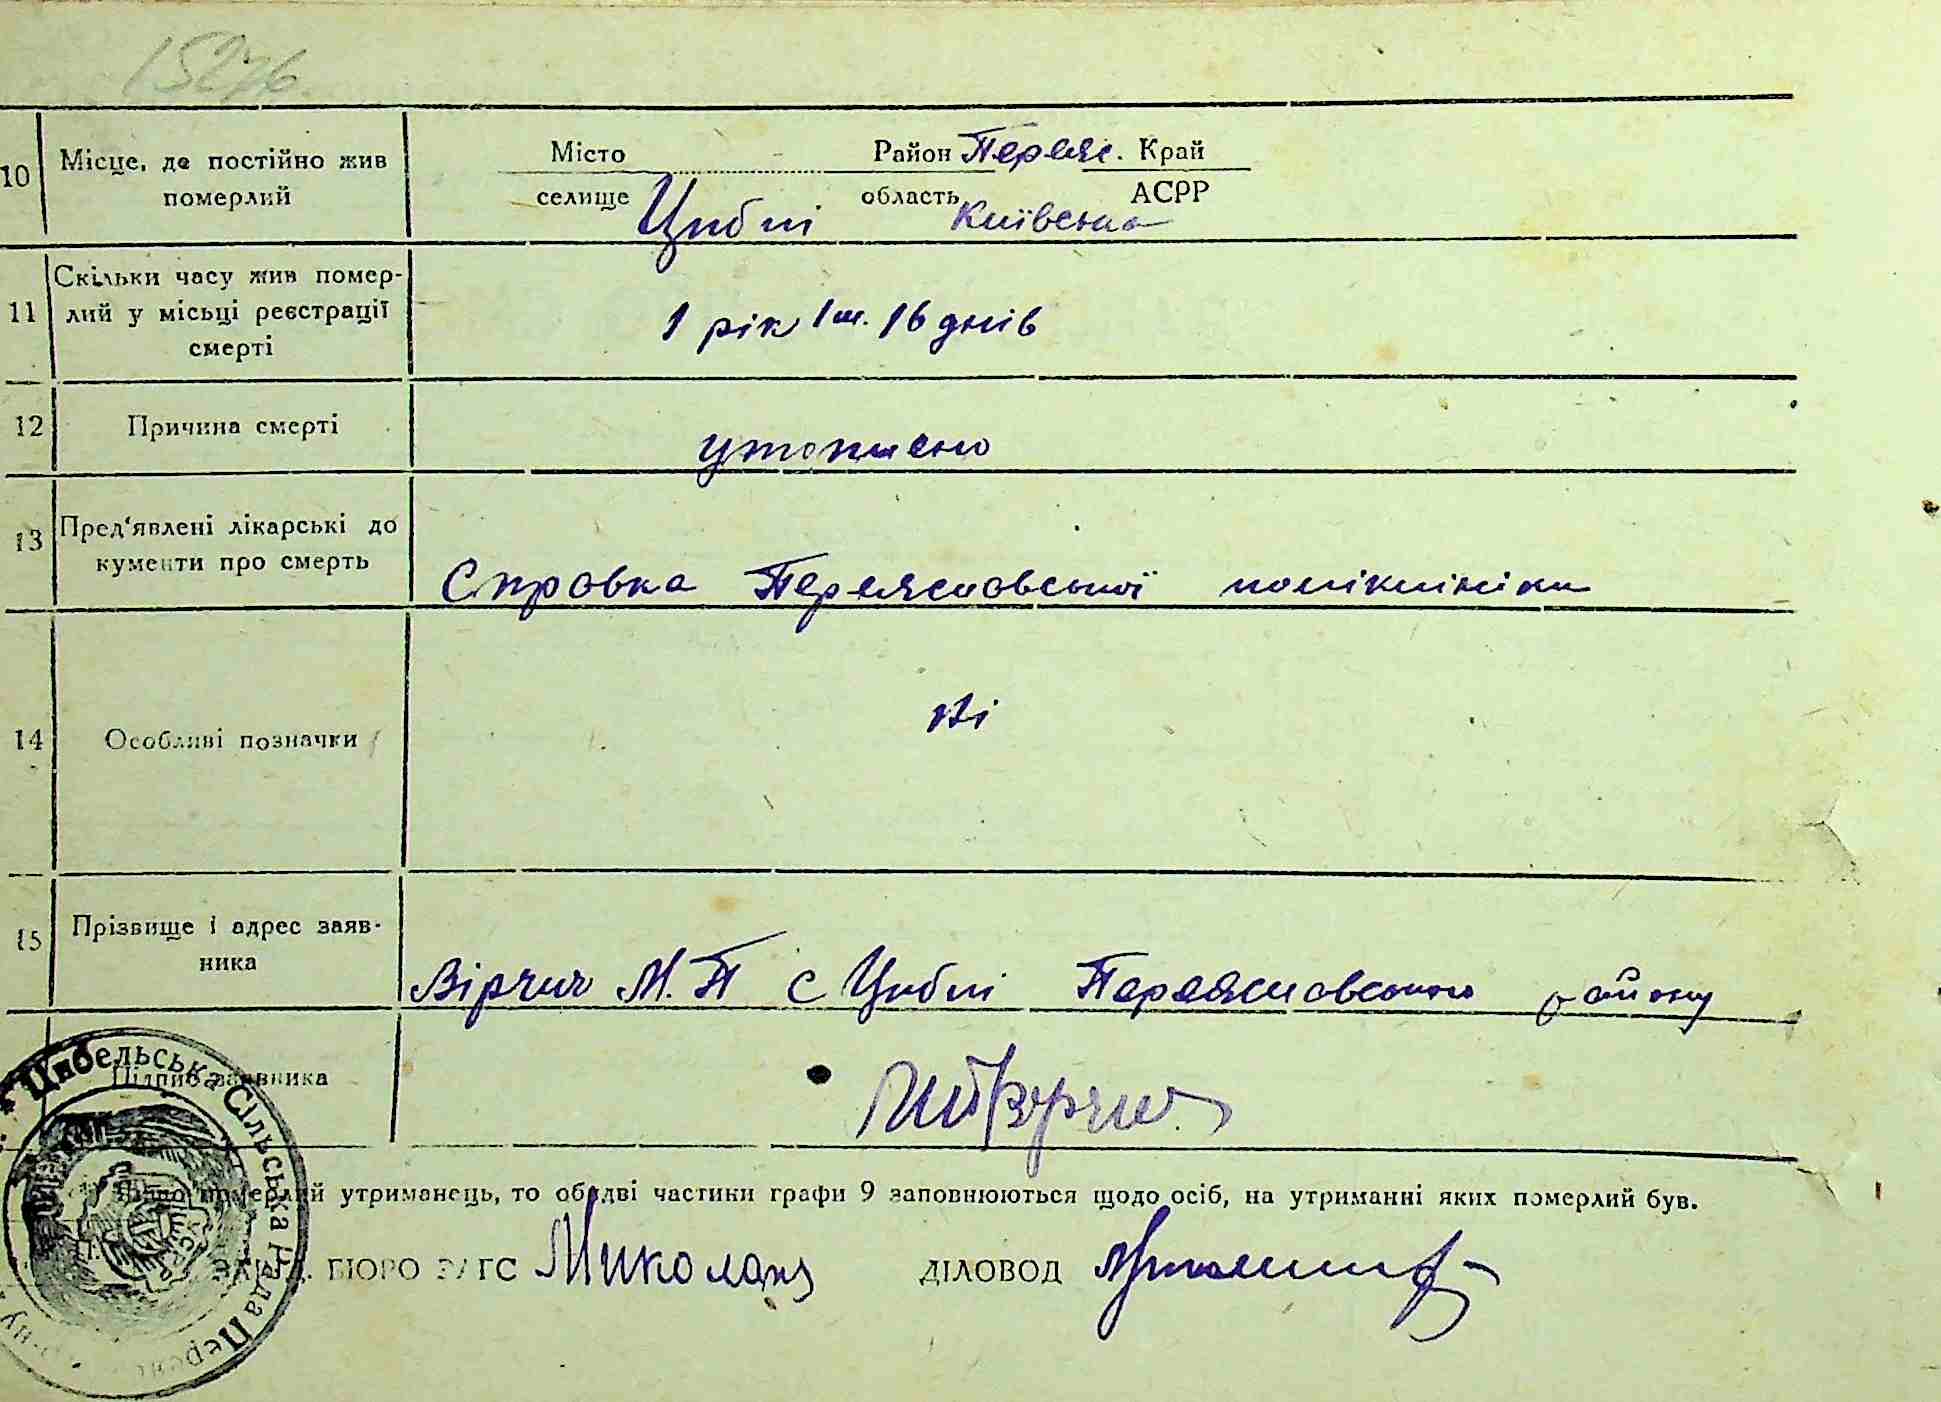 1527б.
10 Місце, де постійно жив Місто Район Переяс. Край
померлий селище Циблі область Київська АСРР
Скільки часу жив помер-
11 лий у місьці реєстрації 1 рік 1 м. 16 днів
смерті
12 Причина смерті утоплено
13 Пред'явлені лікарські до
кументи про смерть Справка Переяславської поліклініки
14 Особливі позначки ні
15 Прізвище і адрес заяв-
ника Вірчич М.П с Циблі Переяславського району
Підпис заявника
Цибельська Сільська Рада Переяс
померлий утриманець, то обидві частини графи 9 заповнюються щодо осіб, на утриманні яких померлий був.
ЗАВІД. БЮРО ЗАГС ДІЛОВОД